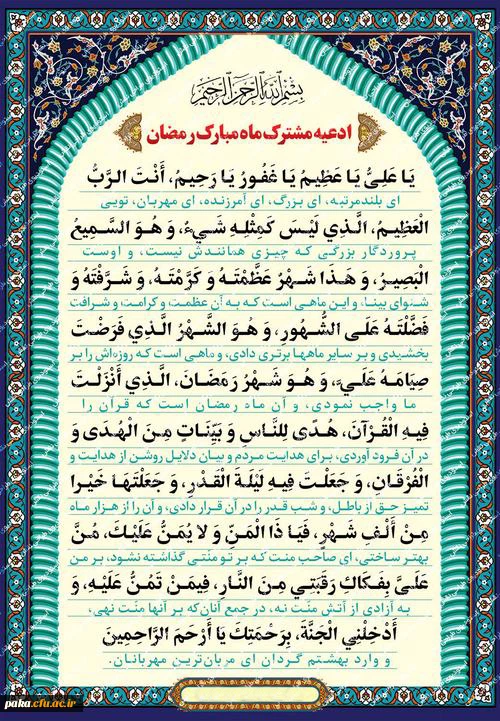 بِسْمِ اللهِ الرَّحْمنِ الرَّحِيمِ
ادعیه مشترک ماه مبارک رمضان
یَا عَلِیُّ یَا عَظِیمُ یَا غَفُورُ یَا رَحِیمُ، أَنْتَ الرَّبُّ
ای بلندمرتبه، ای بزرگ، ای آمرزنده، ای مهربان، تویی
الْعَظِیمُ، الَّذِي لَیْسَ کَمِثْلِهِ شَيءٌ، وَ هُوَ السَّمِیعُ
پروردگار بزرگی که چیزی همانندش نیست، و اوست
الْبَصِیرُ، وَ هَذَا شَهْرٌ عَظَّمْتَهُ وَ کَرَّمْتَهُ، وَ شَرَّفْتَهُ وَ
شنوای بینا، و این ماهی است که به آن عظمت و کرامت و شرافت
فَضَّلْتَهُ عَلَی الشُّهُورِ، وَ هُوَ الشَّهْرُ الَّذِي فَرَضْتَ
بخشیدی و بر سایر ماهها برتری دادی، و ماهی است که روزه‌اش را بر
صِیَامَهُ عَلَيَّ، وَ هُوَ شَهْرُ رَمَضَانَ، الَّذِي أَنْزَلْتَ
ما واجب نمودی، و آن ماه رمضان است که قرآن را
فِیهِ الْقُرْآنَ، هُدًی لِلنَّاسِ وَ بَیِّنَاتٍ مِنَ الْهُدَی وَ
در آن فرود آوردی، برای هدایت مردم و بیان دلایل روشن از هدایت و
الْفُرْقَانِ، وَ جَعَلْتَ فِیهِ لَیْلَةَ الْقَدْرِ، وَ جَعَلْتَهَا خَیْرًا
تمیز حق از باطل، و شب قدر را در آن قرار دادی، و آن را از هزار ماه
مِنْ أَلْفِ شَهْرٍ، فَیَا ذَا الْمَنِّ وَ لا یُمَنُّ عَلَیْكَ، مُنَّ
بهتر ساختی، ای صاحب منت که بر تو منّتی گذاشته نشود، بر من
عَلَيَّ بِفَکَاكِ رَقَبَتِي مِنَ النَّارِ، فِیمَنْ تَمُنُّ عَلَیْهِ، وَ
به آزادی از آتش منّت نه، در جمع آنان‌که بر آنها منّت نهی،
أَدْخِلْنِي الْجَنَّةَ، بِرَحْمَتِكَ یَا أَرْحَمَ الرَّاحِمِینَ
و وارد بهشتم گردان ای مهربان‌ترین مهربانان.
paka.cfu.ac.ir